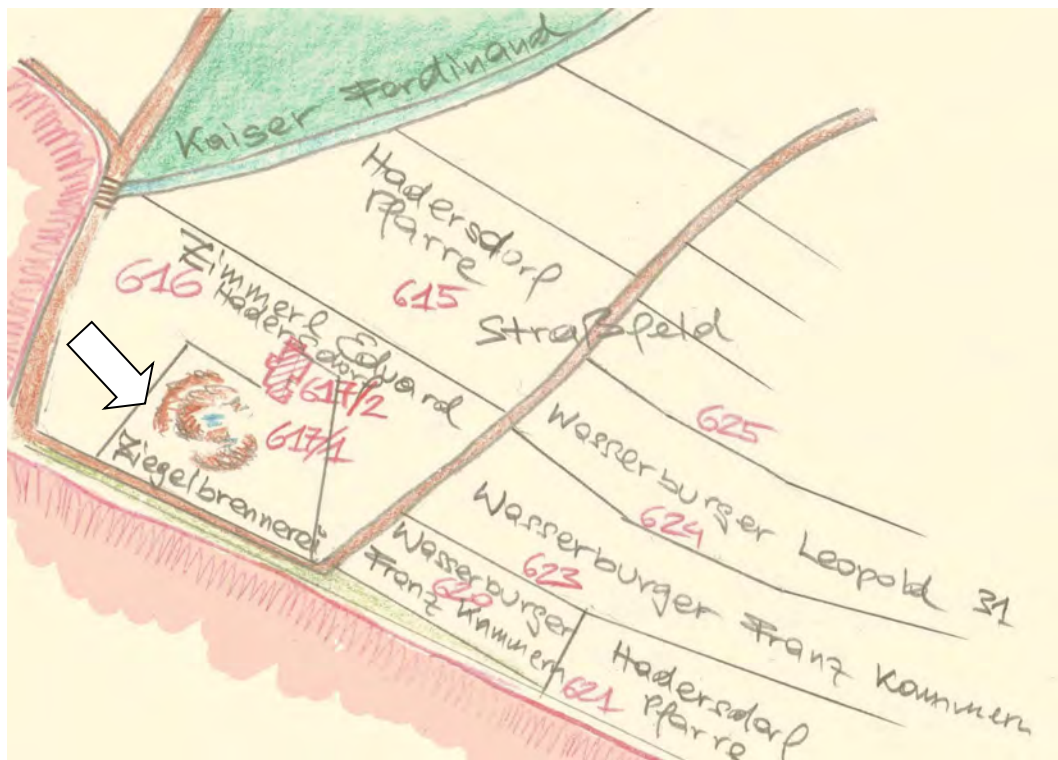 Kaiser Ferdinand
Hadersdorf
Pfarre
615
Straßfeld
Zimmerl Eduard
Hadersdorf
616
617/2
617/1
Ziegelbrennerei
625
Wasserburger Leopold 31
624
Wasserburger Franz Kammern
623
Wasserburger
Franz Kammern
620
Hadersdorf
Pfarre
621